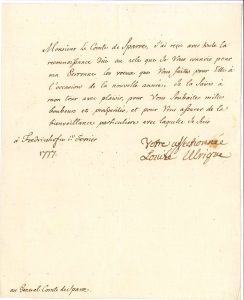 Monsieur le Comte de Sparre, J'ai reçu avec toute la
reconnoissance due au zele que je Vous connois pour
ma Personne les voeux que Vous faites pour Elle à
l'occasion de la nouvelle année. Je la saisis à
mon tour avec plaisir, pour Vous souhaiter milles
bonheurs et prosperités, et pour Vous assurer de la
bienveillance particuliere avec laquelle Je suis
à Fredrichshof ce Fevrier
1777.
Votre affectionnée
Louise Ulrique
au General Comte de Sparre